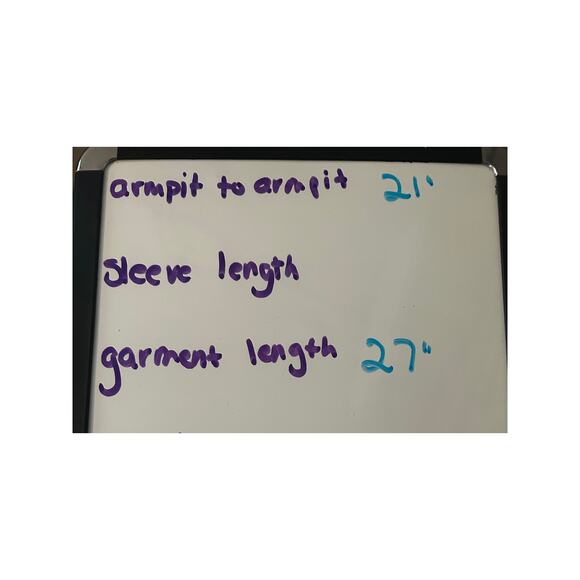 armpit to armpit 21"
sleeve length
garment length 27"